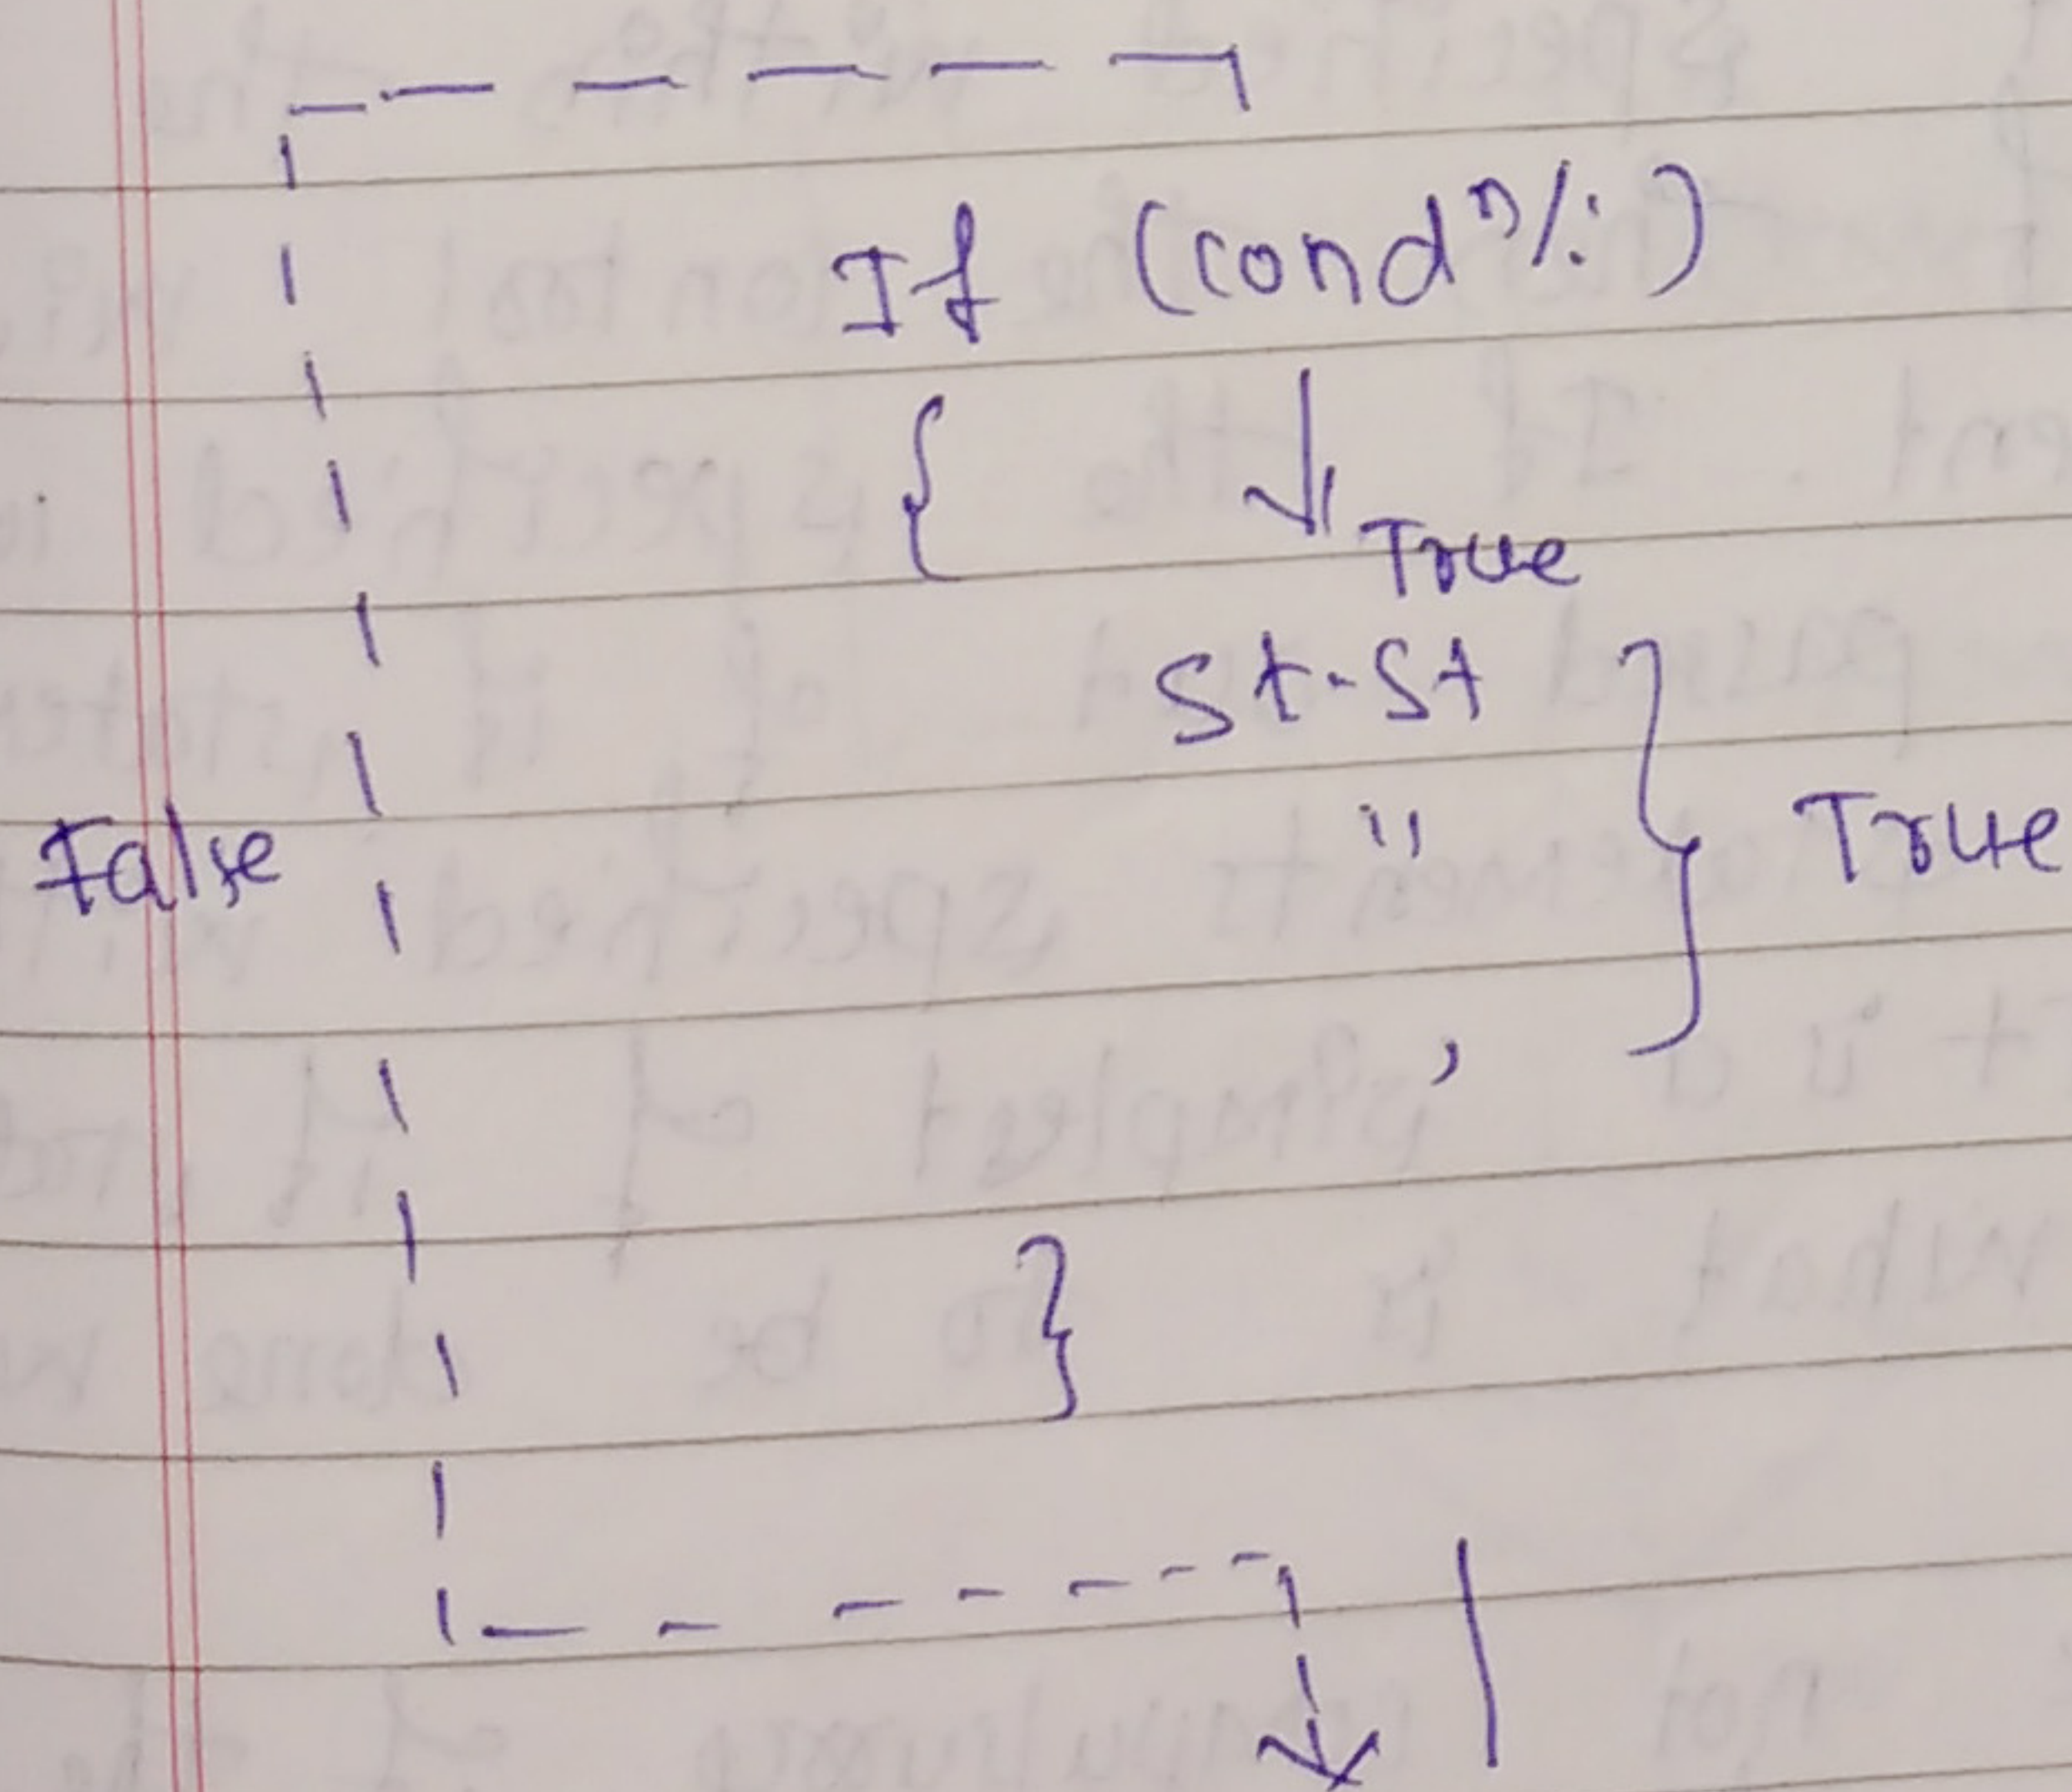 If (condⁿ/.)
{
True
St-St
False " } True
,
}